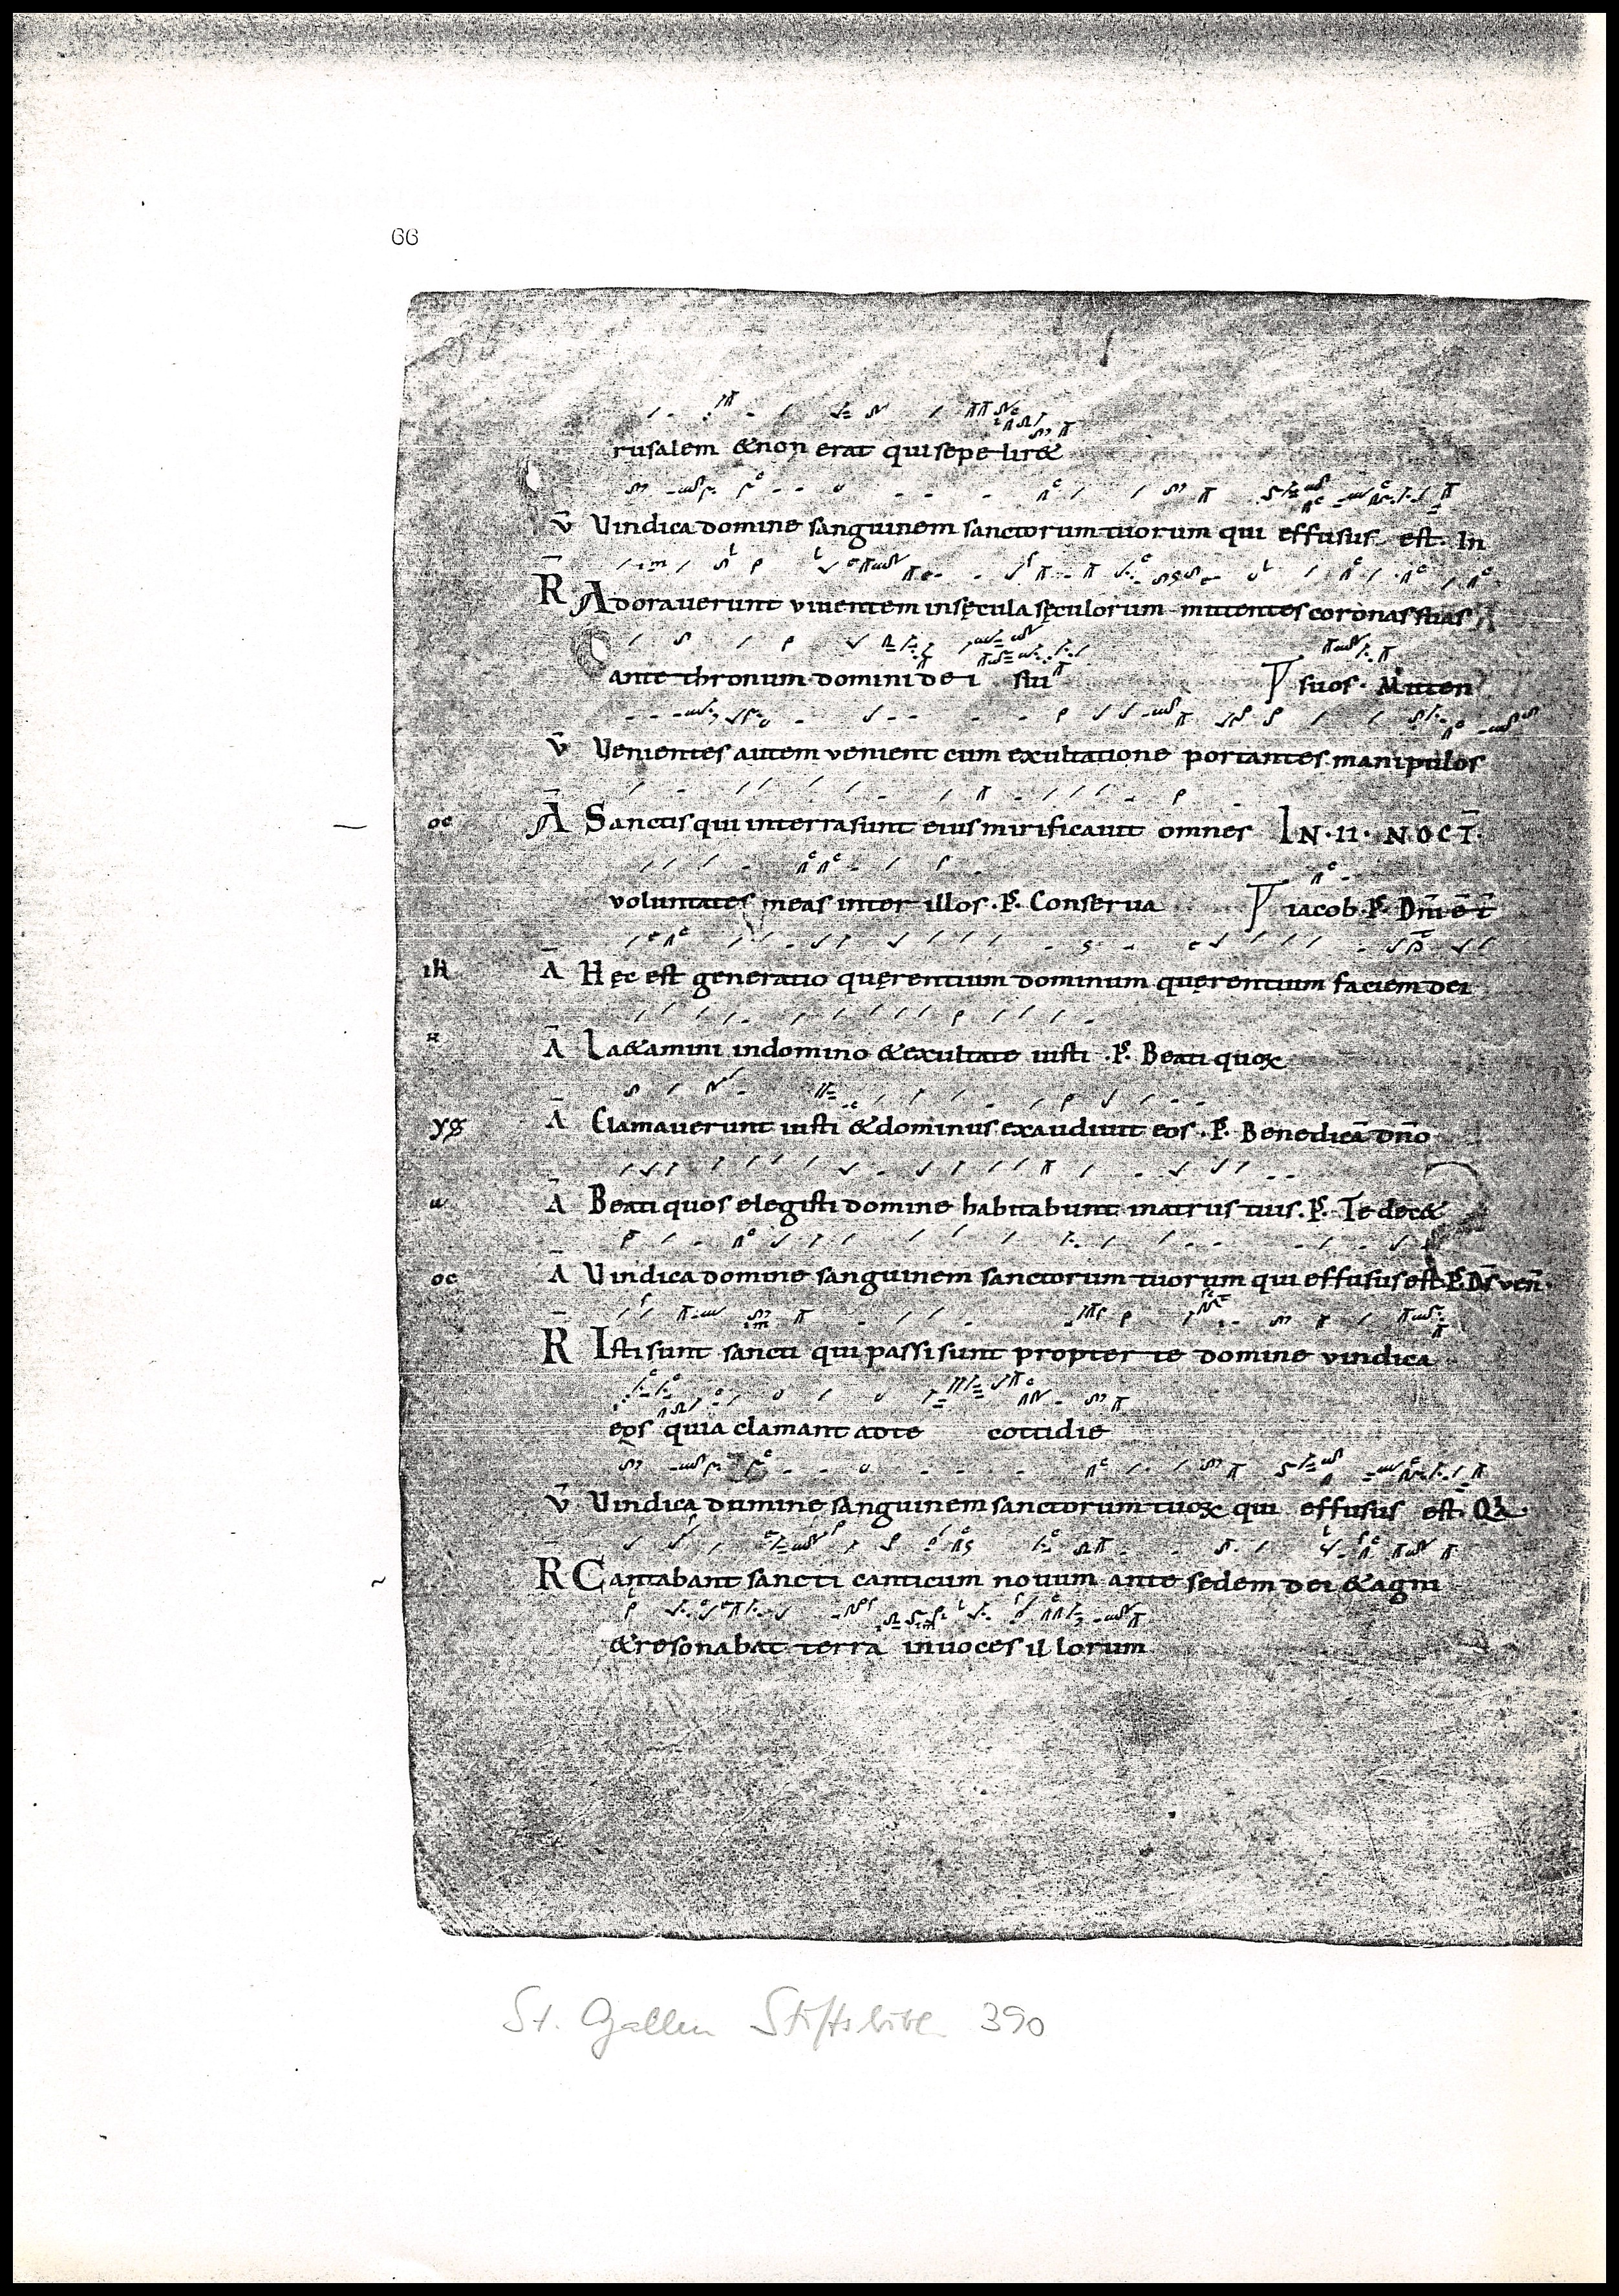 66
rusalem & non erat qui sepelir&
v̄ Uindica domine sanguinem sanctorum tuorum qui effusus est. In
R̄ Adorauerunt uiuentem in sęcula sęculorum mittentes coronas suas
ante thronum domini dei sui suos. Mitten
v̄ Uenientes autem uenient cum exultatione portantes manipulos
oe Ā Sanctis qui in terra sunt eius mirificauit omnes IN · II · NOCT̄.
uoluntates meas inter illos. P̄s. Conserua iacob. P̄s. Dn̄i ē t̄
Ā Hęc est generatio quęrentium dominum quęrentium faciem dei
Ā Laetamini in domino & exultate iusti. P̄s. Beati quoꝝ
Ā Clamauerunt iusti & dominus exaudiuit eos. P̄s. Benedicā dn̄o
Ā Beati quos elegisti domine habitabunt in atriis tuis. P̄s. Te dec&
oc Ā Uindica domine sanguinem sanctorum tuorum qui effusus est. P̄s. Dš uen̄.
R̄ Isti sunt sancti qui passi sunt propter te domine uindica
eos quia clamant ad te cottidie
v̄ Uindica domine sanguinem sanctorum tuoꝝ qui effusus est.
R̄ Cantabant sancti canticum nouum ante sedem dei & agni
& resonabat terra in uoces illorum
St. Gallen Stiftsbibl. 390